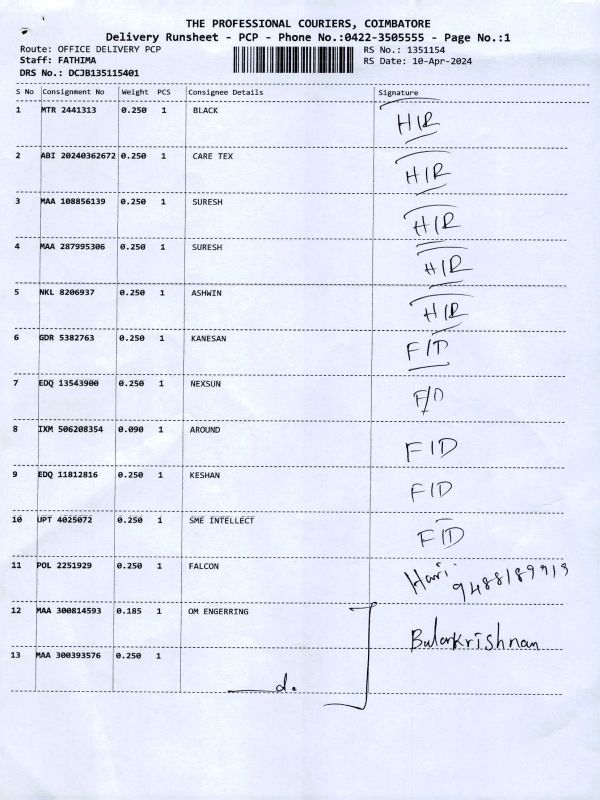 THE PROFESSIONAL COURIERS, COIMBATORE
Delivery Runsheet - PCP - Phone No.:0422-3505555 - Page No.:1
Route: OFFICE DELIVERY PCP RS No.: 1351154
Staff: FATHIMA RS Date: 10-Apr-2024
DRS No.: DCJB135115401
S No Consignment No Weight PCS Consignee Details Signature
1 MTR 2441313 0.250 1 BLACK H/R
2 ABI 20240362672 0.250 1 CARE TEX H/R
3 MAA 108856139 0.250 1 SURESH H/R
4 MAA 287995306 0.250 1 SURESH H/R
5 NKL 8206937 0.250 1 ASHWIN H/R
6 GDR 5382763 0.250 1 KANESAN F/D
7 EDQ 13543900 0.250 1 NEXSUN F/D
8 IXM 506208354 0.090 1 AROUND F/D
9 EDQ 11812816 0.250 1 KESHAN F/D
10 UPT 4025072 0.250 1 SME INTELLECT F/D
11 POL 2251929 0.250 1 FALCON Hari
9488189919
12 MAA 300814593 0.185 1 OM ENGERRING Balankrishnan
13 MAA 300393576 0.250 1
d.